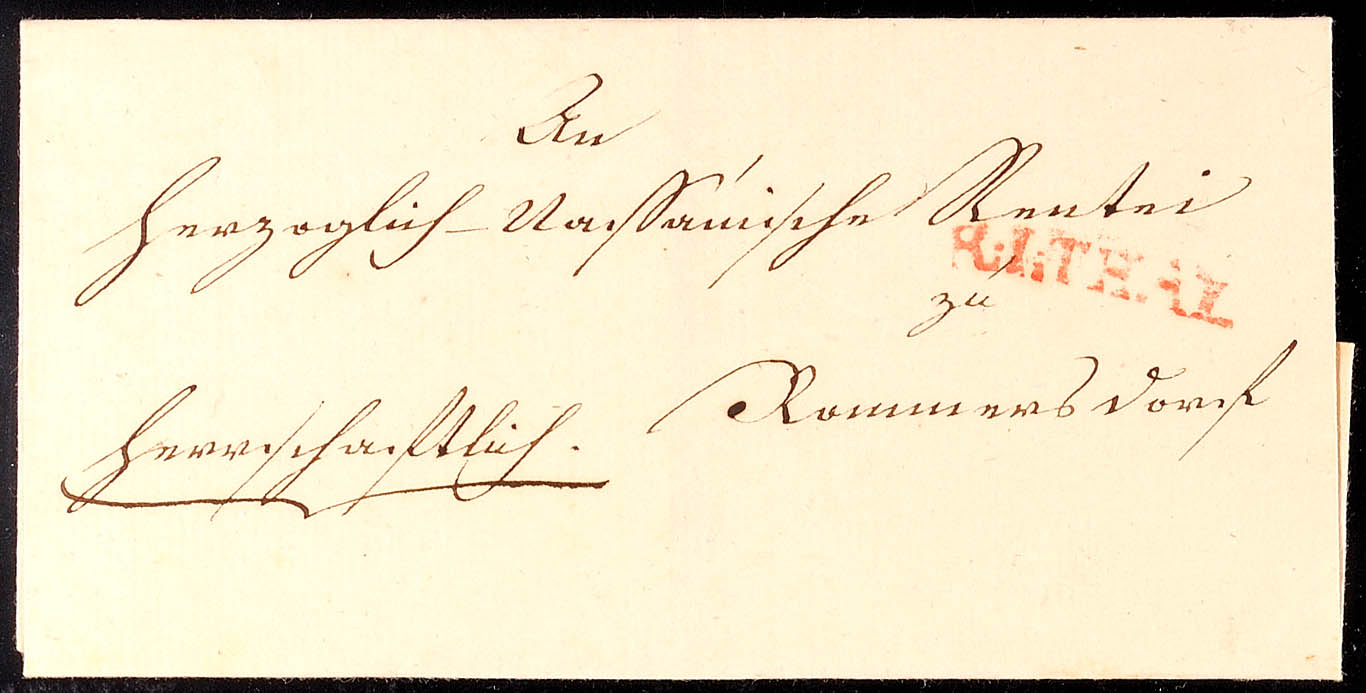 An
Herzoglich-Nassauische Rentei
THAL
zu
Rommersdorf
Herrschaftlich.